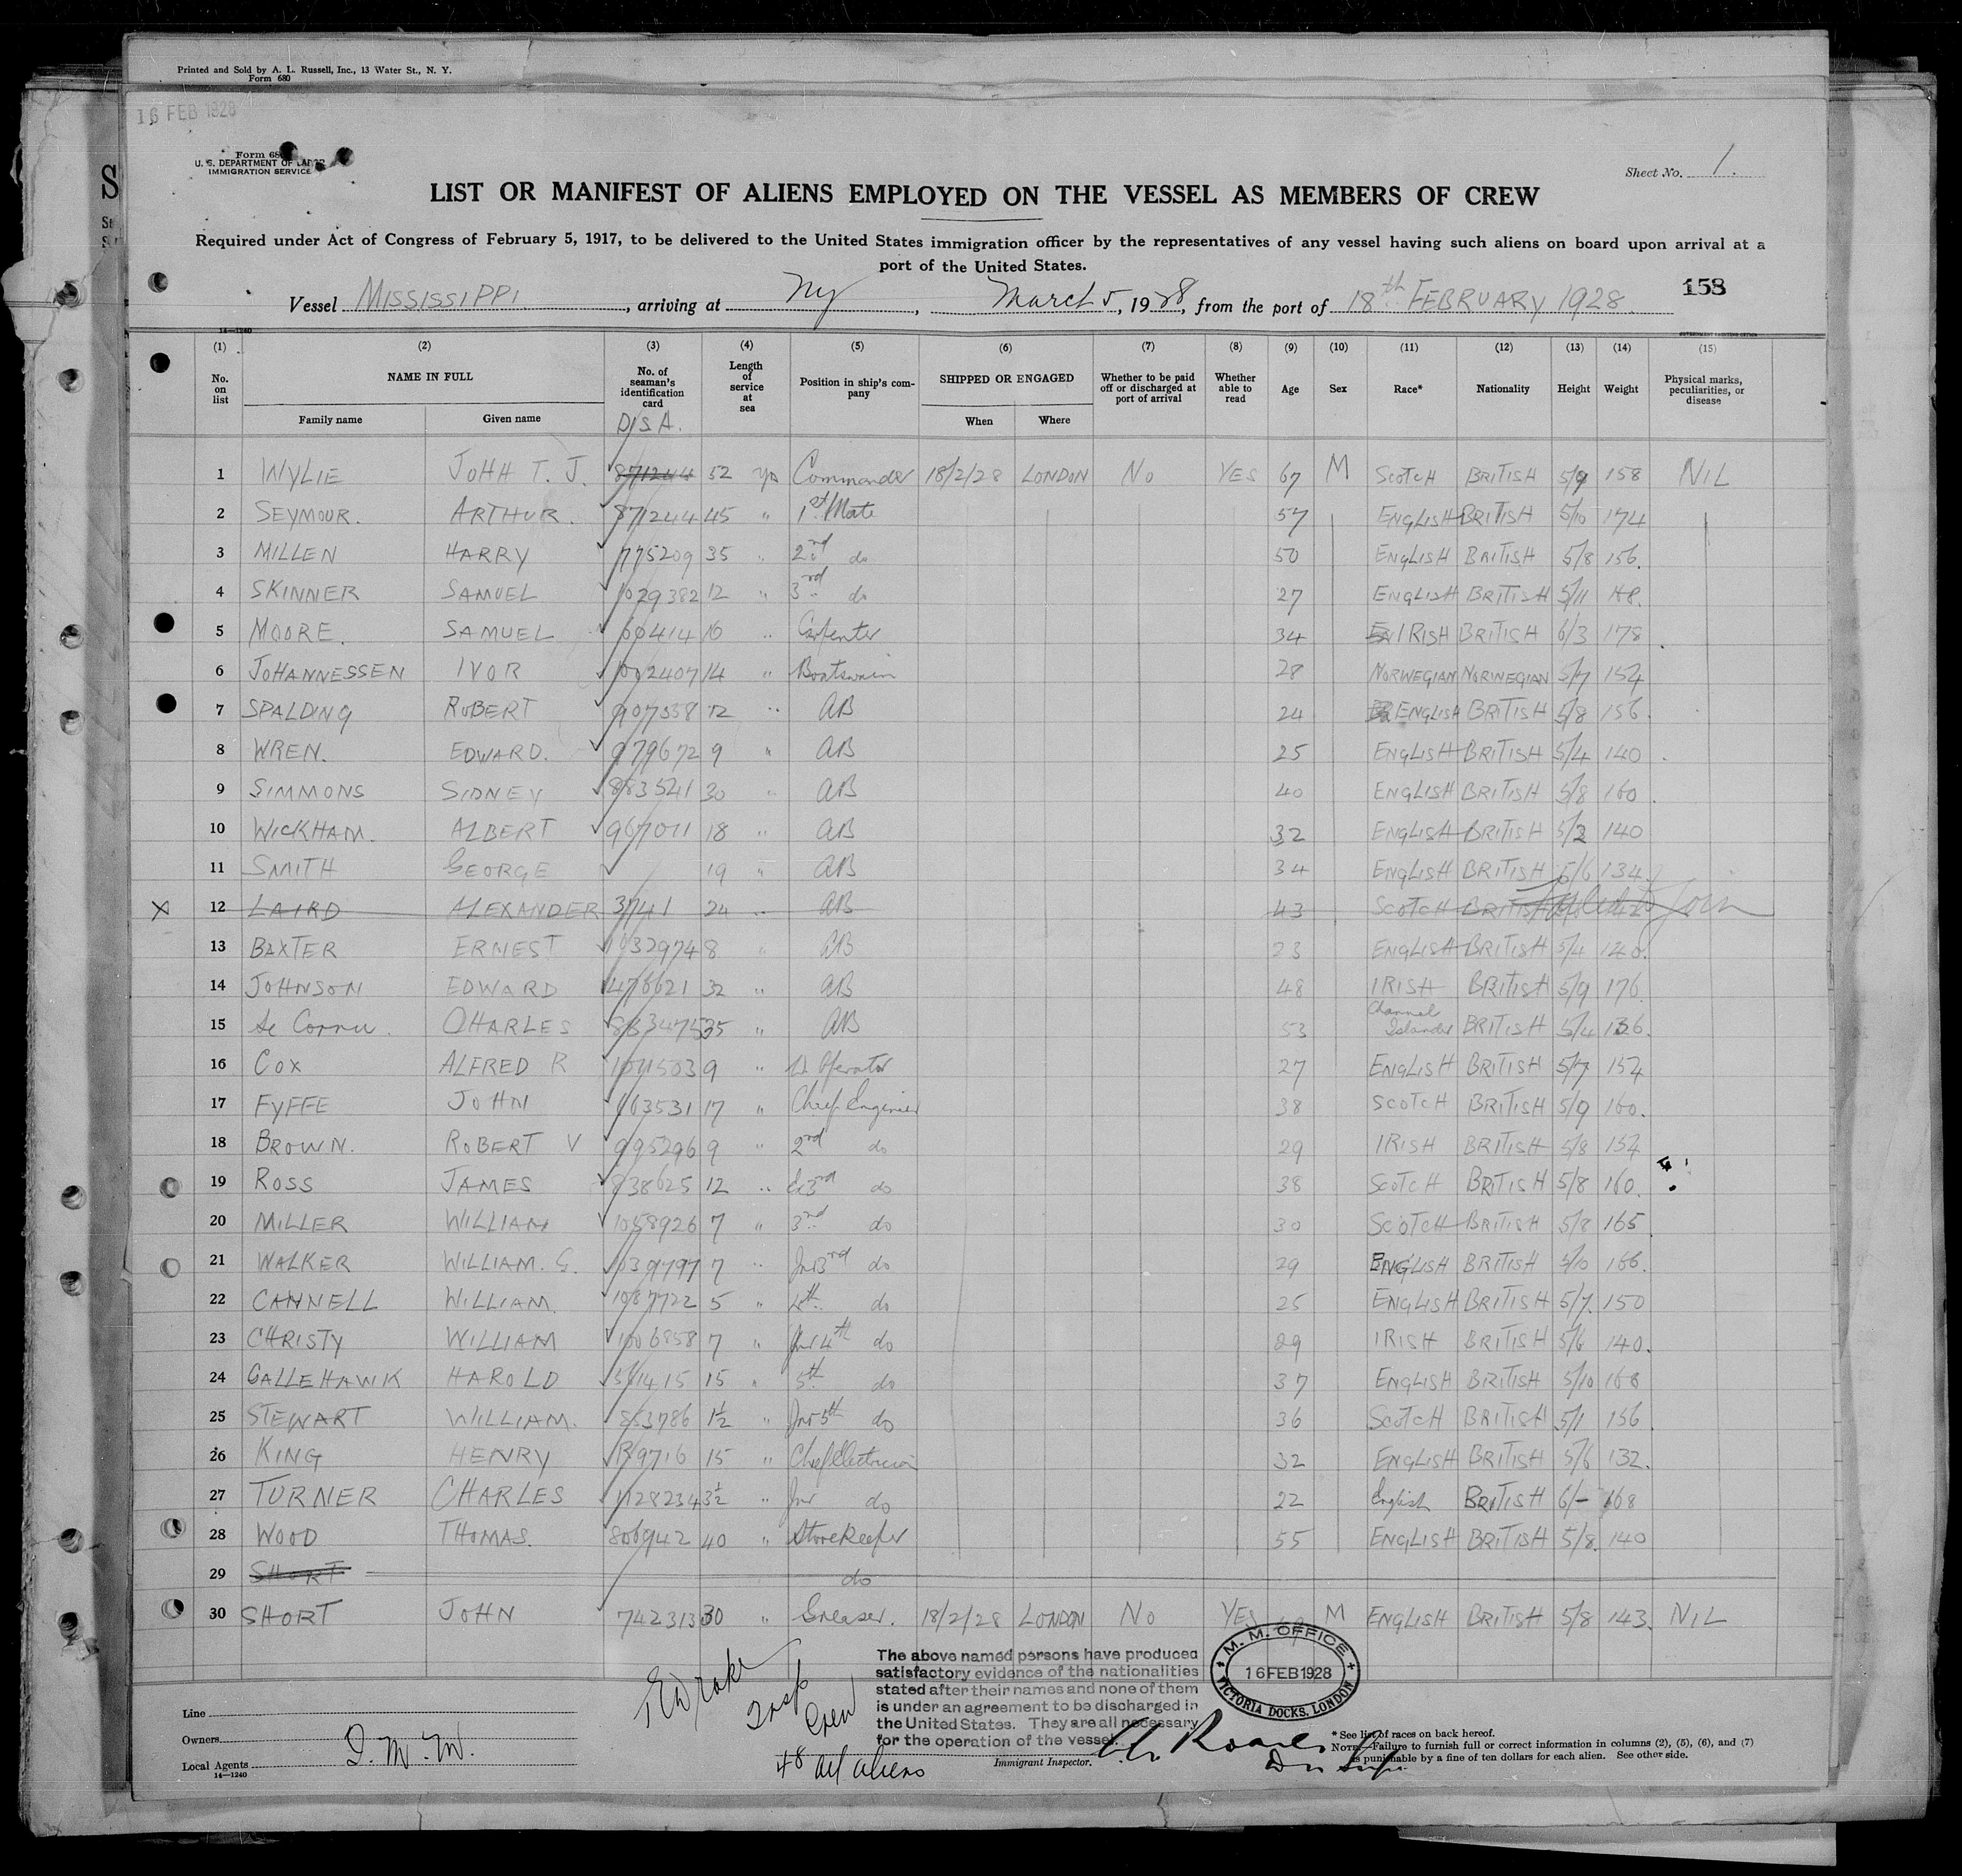 Printed and Sold by A. L. Russell, Inc., 13 Water St., N. Y.
Form 680
16 FEB 1928
Form 680
U. S. DEPARTMENT OF LABOR
IMMIGRATION SERVICE
Sheet No. 1.
LIST OR MANIFEST OF ALIENS EMPLOYED ON THE VESSEL AS MEMBERS OF CREW
Required under Act of Congress of February 5, 1917, to be delivered to the United States immigration officer by the representatives of any vessel having such aliens on board upon arrival at a
port of the United States.
158
Vessel MISSISSIPPI, arriving at NY, March 5, 1928, from the port of 18th FEBRUARY 1928.
14—1240
(1) (2) (3) (4) (5) (6) (7) (8) (9) (10) (11) (12) (13) (14) (15)
No. on list NAME IN FULL Family name Given name No. of seaman's identification card DISA. Length of service at sea Position in ship's company SHIPPED OR ENGAGED When Where Whether to be paid off or discharged at port of arrival Whether able to read Age Sex Race* Nationality Height Weight Physical marks, peculiarities, or disease
1 WYLIE JOHH T. J. 871244 52 yrs Commander 18/2/28 LONDON No YES 67 M SCOTCH BRITISH 5/9 158 NIL
2 SEYMOUR. ARTHUR. 871244 45 " 1st Mate 57 ENGLISH BRITISH 5/10 174
3 MILLEN HARRY 775209 35 " 2nd do 50 ENGLISH BRITISH 5/8 156.
4 SKINNER SAMUEL 1029382 12 " 3rd do 27 ENGLISH BRITISH 5/11
5 MOORE. SAMUEL 60414 16 " Carpenter 34 IRISH BRITISH 6/3 178
6 JOHANNESSEN IVOR 1002407 14 " Boatswain 28 NORWEGIAN NORWEGIAN 5/7 154
7 SPALDING ROBERT 907338 12 " AB 24 ENGLISH BRITISH 5/8 156
8 WREN. EDWARD. 979672 9 " AB 25 ENGLISH BRITISH 5/4 140
9 SIMMONS SIDNEY 883541 30 " AB 40 ENGLISH BRITISH 5/8 160
10 WICKHAM. ALBERT 967011 18 " AB 32 ENGLISH BRITISH 5/2 140
11 SMITH GEORGE 19 " AB 34 ENGLISH BRITISH 5/6 134
X 12 LAIRD ALEXANDER 3741 24 " AB 43 SCOTCH BRITISH Failed to Join
13 BAXTER ERNEST 1032974 8 " AB 23 ENGLISH BRITISH 5/4 140.
14 JOHNSON EDWARD 476621 32 " AB 48 IRISH BRITISH 5/9 176
15 Le Cornu. CHARLES 883475 35 " AB 53 Channel Islander BRITISH 5/4 136.
16 COX ALFRED R 1011503 9 " Operator 27 ENGLISH BRITISH 5/7 154
17 FYFFE JOHN 663531 17 " Chief Engineer 38 SCOTCH BRITISH 5/9 160.
18 BROWN. ROBERT V 995296 9 " 2nd do 29 IRISH BRITISH 5/8 154
19 ROSS JAMES 838625 12 " Ex3rd do 38 SCOTCH BRITISH 5/8 160.
20 MILLER WILLIAM 1058926 7 " 3rd do 30 SCOTCH BRITISH 5/8 165
21 WALKER WILLIAM. G. 1039797 7 " Jnr3rd do 29 ENGLISH BRITISH 5/10 166.
22 CANNELL WILLIAM. 1087722 5 " 4th do 25 ENGLISH BRITISH 5/7. 150
23 CHRISTY WILLIAM 1006858 7 " Jnr 4th do 29 IRISH BRITISH 5/6 140.
24 GALLEHAWK HAROLD 15 " 5th do 37 ENGLISH BRITISH 5/10 168
25 STEWART WILLIAM. 853786 1½ " Jnr 5th do 36 SCOTCH BRITISH 5/1 156
26 KING HENRY 15 " Chief Electrician 32 ENGLISH BRITISH 5/6 132.
27 TURNER CHARLES 1128234 3½ " Jnr do 22 English BRITISH 6/- 168
28 WOOD THOMAS. 806942 40 " Storekeeper 55 ENGLISH BRITISH 5/8. 140
29 SHORT do
30 SHORT JOHN 742313 30 " Greaser. 18/2/28 LONDON No YES M ENGLISH BRITISH 5/8 143. NIL
The above named persons have produced
satisfactory evidence of the nationalities
stated after their names and none of them
is under an agreement to be discharged in
the United States. They are all necessary
for the operation of the vessel.
M. M. OFFICE
16 FEB 1928
VICTORIA DOCKS, LONDON
Insp
Crew
48 all aliens
Line
Owners
Local Agents I. M. M.
14—1240
Immigrant Inspector.
* See list of races on back hereof.
NOTE—Failure to furnish full or correct information in columns (2), (5), (6), and (7)
is punishable by a fine of ten dollars for each alien. See other side.